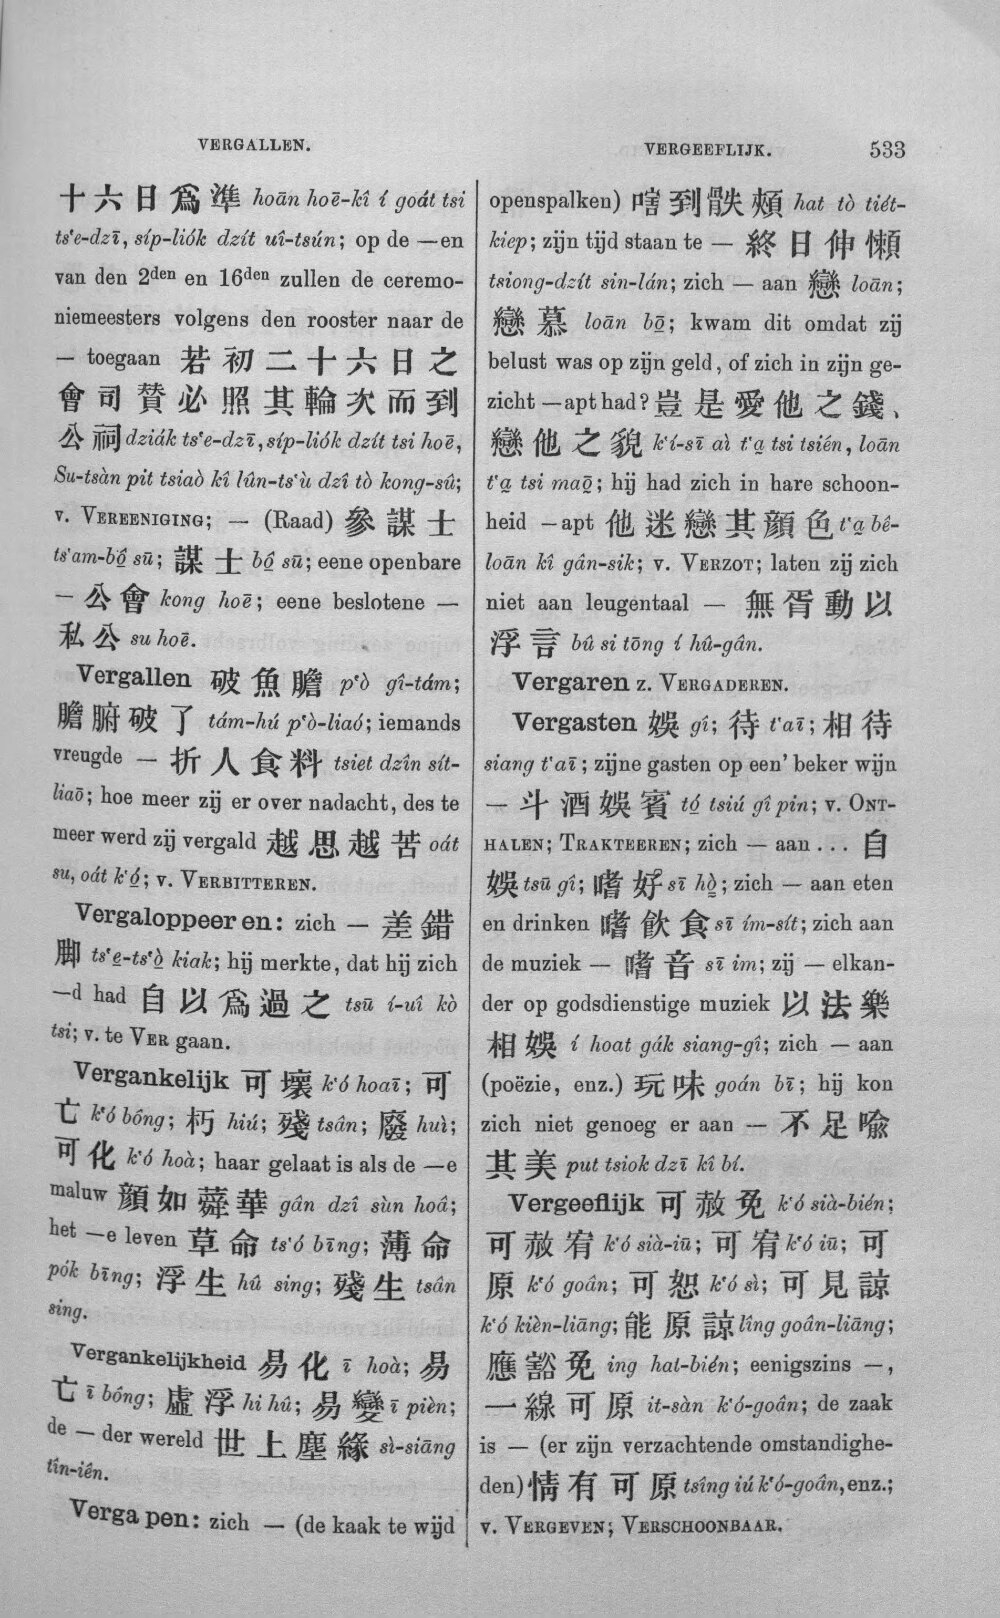 VERGALLEN.
VERGEEFLIJK. 533
十六日爲準 hoān hoē-kî í goát tsi
ts‘e-dzī, síp-liók dzít uî-tsún; op de —en
van den 2den en 16den zullen de ceremo-
niemeesters volgens den rooster naar de
— toegaan 若初二十六日之
會司賛必照其輪次而到
公祠 dziák ts‘e-dzī, síp-liók dzít tsi hoē,
Su-tsàn pit tsiaò kî lûn-ts‘ù dzî tò kong-sû;
v. VEREENIGING; — (Raad) 參謀士
ts‘am-bô̤ sū; 謀士 bô̤ sū; eene openbare
— 公會 kong hoē; eene beslotene —
私公 su hoē.
Vergallen 破魚膽 p‘ò gî-tám;
膽腑破了 tám-hú p‘ò-liaó; iemands
vreugde — 折人食料 tsiet dzîn sít-
liaō; hoe meer zij er over nadacht, des te
meer werd zij vergald 越思越苦 oát
su, oát k‘ó̤; v. VERBITTEREN.
Vergaloppeeren: zich — 差錯
脚 ts‘e̤-ts‘ò̤ kiak; hij merkte, dat hij zich
—d had 自以爲過之 tsū í-uî kò
tsi; v. te VER gaan.
Vergankelijk 可壞 k‘ó hoaī; 可
亡 k‘ó bông; 朽 hiú; 殘 tsân; 廢 huì;
可化 k‘ó hoà; haar gelaat is als de —e
maluw 顏如蕣華 gân dzî sùn hoâ;
het —e leven 草命 ts‘ó bīng; 薄命
pók bīng; 浮生 hû sing; 殘生 tsân
sing.
Vergankelijkheid 易化 ī hoà; 易
亡 ī bông; 虛浮 hi hû; 易變 ī pièn;
de — der wereld 世上塵緣 sì-siāng
tîn-iên.
Vergapen: zich — (de kaak te wijd
openspalken) 嗐到骩頰 hat tò tiét-
kiep; zijn tijd staan te — 終日伸懶
tsiong-dzít sin-lán; zich — aan 戀 loān;
戀慕 loān bō̤; kwam dit omdat zij
belust was op zijn geld, of zich in zijn ge-
zicht —apt had? 豈是愛他之錢、
戀他之貌 k‘í-sī aì t‘a̤ tsi tsién, loān
t‘a̤ tsi maō̤; hij had zich in hare schoon-
heid —apt 他迷戀其顏色 t‘a̤ bê-
loān kî gân-sik; v. VERZOT; laten zij zich
niet aan leugentaal — 無胥動以
浮言 bû si tōng í hû-gân.
Vergaren z. VERGADEREN.
Vergasten 娛 gî; 待 t‘aī; 相待
siang t‘aī; zijne gasten op een’ beker wijn
— 斗酒娛賓 tó̤ tsiú gî pin; v. ONT-
HALEN; TRAKTEEREN; zich — aan ... 自
娛 tsū gî; 嗜好 sī hò̤; zich — aan eten
en drinken 嗜飲食 sī ím-sít; zich aan
de muziek — 嗜音 sī im; zij — elkan-
der op godsdienstige muziek 以法樂
相娛 í hoat gák siang-gî; zich — aan
(poëzie, enz.) 玩味 goán bī; hij kon
zich niet genoeg er aan — 不足喩
其美 put tsiok dzī kî bí.
Vergeeflijk 可赦免 k‘ó sià-bién;
可赦宥 k‘ó sià-iū; 可宥 k‘ó iū; 可
原 k‘ó goân; 可恕 k‘ó sì; 可見諒
k‘ó kièn-liāng; 能原諒 lîng goân-liāng;
應豁免 ing hat-bién; eenigszins —,
一線可原 it-sàn k‘ó-goân; de zaak
is — (er zijn verzachtende omstandighe-
den) 情有可原 tsîng iú k‘ó-goân, enz.;
v. VERGEVEN; VERSCHOONBAAR.